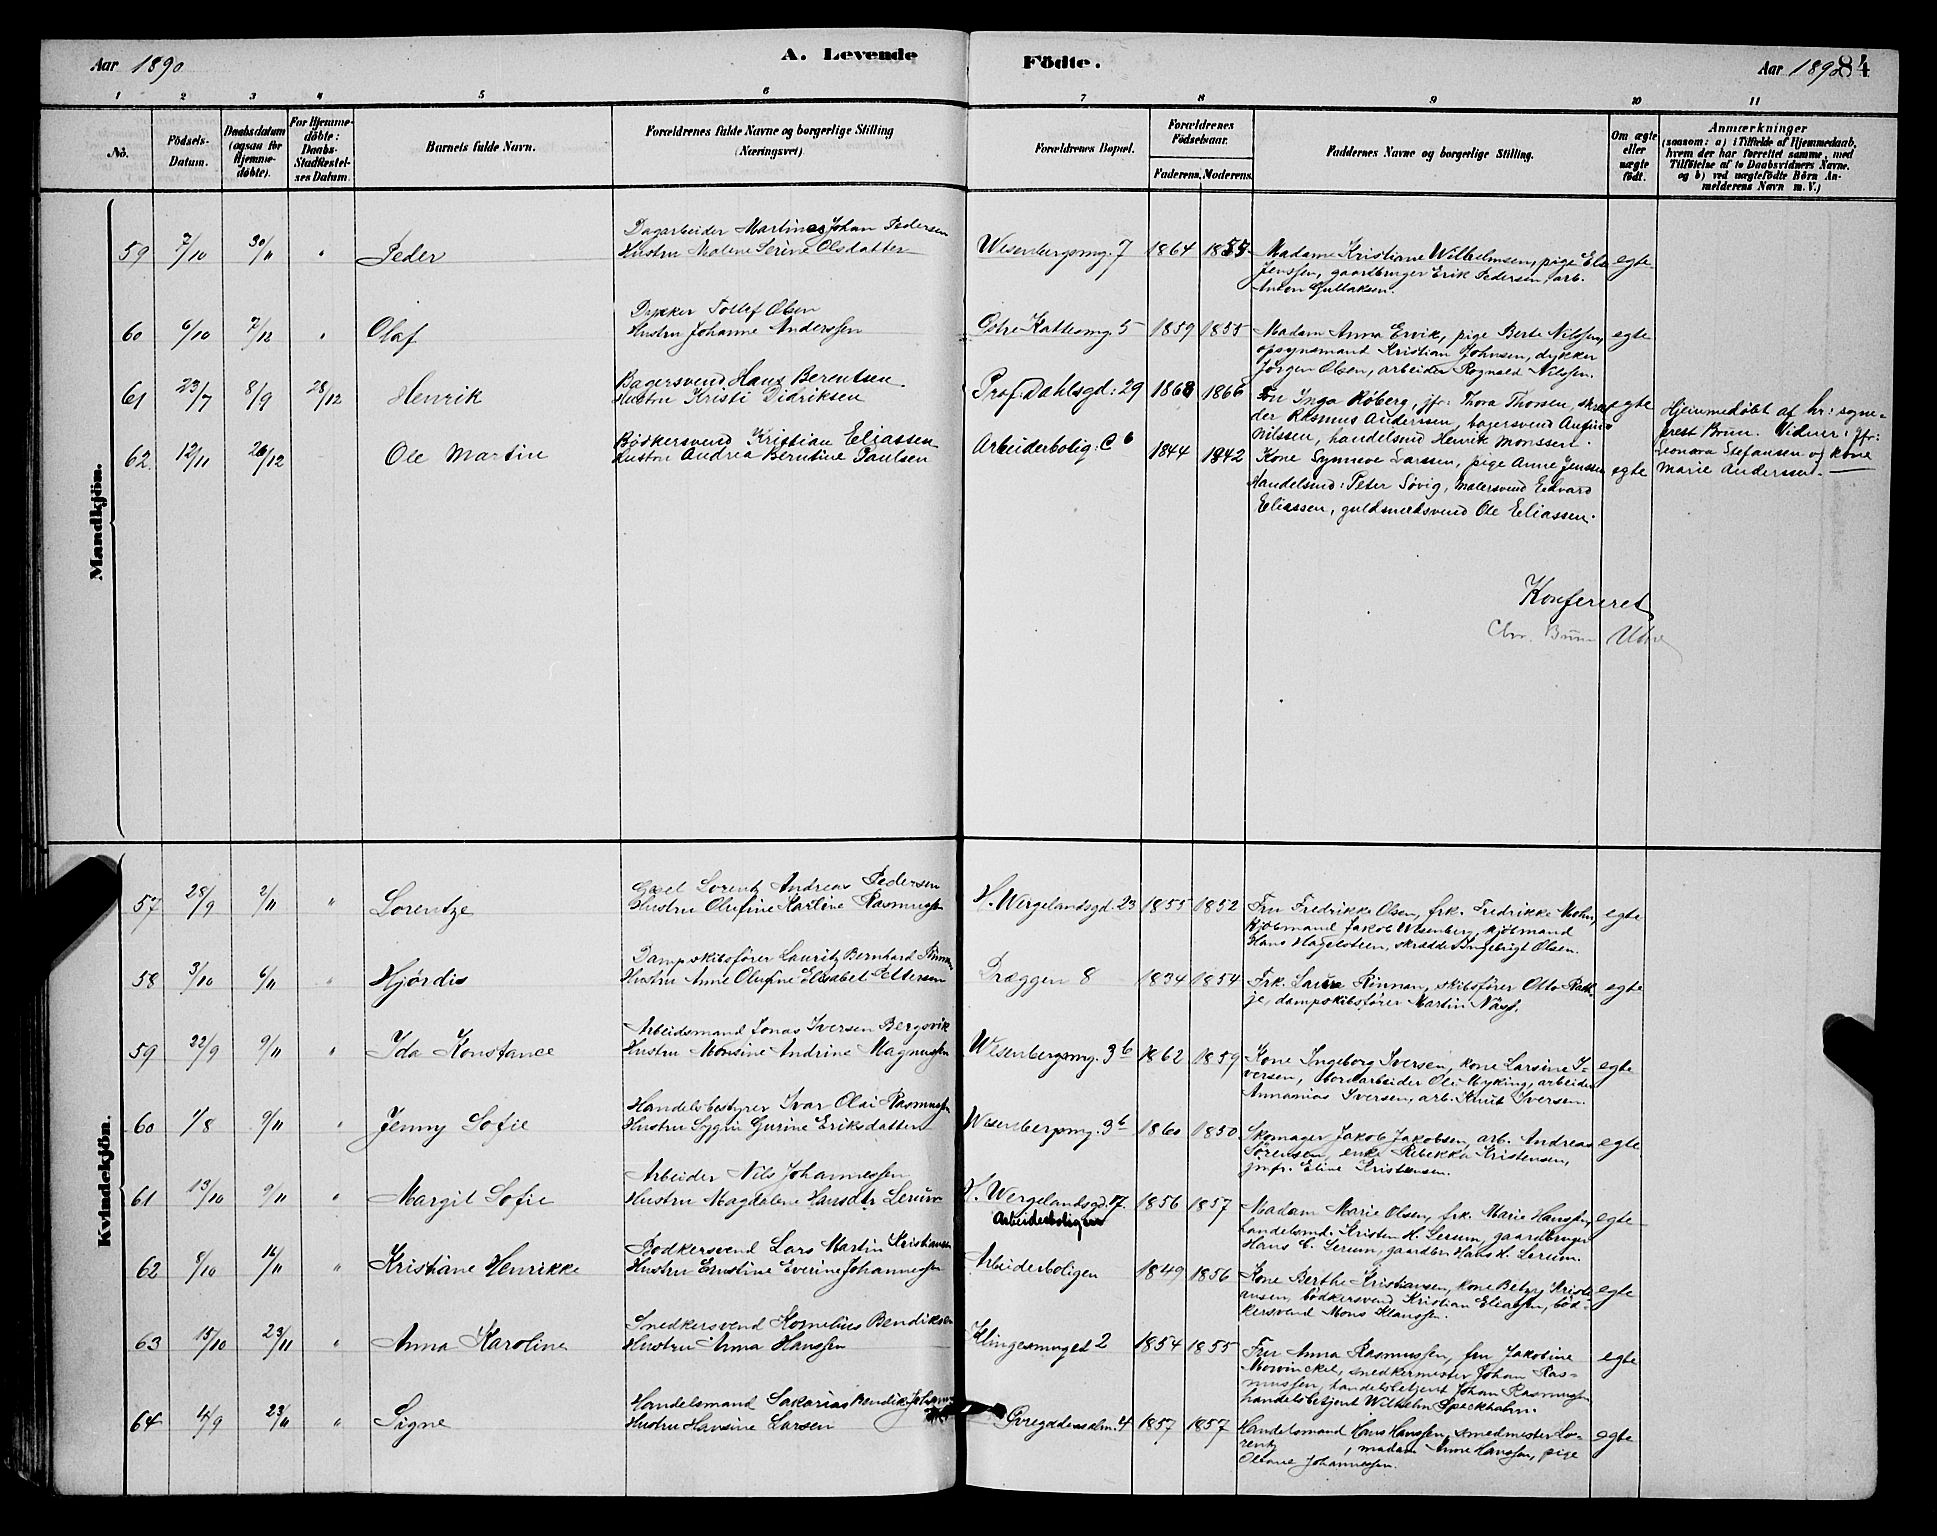 Aar 1890
A. Levende
Födte.
Aar 1890
84
1 2 3 4 5 6 7 8 9 10 11
No.
Födsels-
Datum.
Daabsdatum
(ogsaa for
Hjemme-
döbte).
For Hjemme-
döbte:
Daabs-
Stadfestel-
ses Datum.
Barnets fulde Navn.
Forældrenes fulde Navne og borgerlige Stilling
(Næringsvei)
Forældrenes Bopæl.
Forældrenes
Födselsaar.
Faderens. Moderens.
Faddernes Navne og borgerlige Stilling.
Om ægte
eller
uægte
födt.
Anmærkninger
(saasom: a) i Tilfælde af Hjemmedaab,
hvem der har forrettet samme, med
Tilföielse af to Daabsvidners Navne,
og b) ved uægtefödte Börn An-
melderens Navn m. V.)
Mandkjön.
59 7/10 30/11 " Peder
Dagarbeider Martines Johan Pedersen
Hustru Malene Serine Olsdatter
Wesenbergsmg. 7 1864 1855
Madame Kristiane Wilhelmsen, pige Else
Jenssen, gaardbruger Erik Pedersen, arb.
Anton Gullaksen.
egte
60 6/10 7/12 " Olaf
Dykker Tollef Olsen
Hustru Johanne Anderssen
Östre Kattesmg. 5 1859 1855
Madam Anna Ervik, pige Berte Nilssen,
opsynsmand Kristian Johnsen, dykker
Jörgen Olsen, arbeider Rognald Nilssen.
egte
61 23/7 8/9 28/12 Henrik
Bagersvend Hans Berentsen
Hustru Kristi Didriksen
Prof. Dahlsgd: 29 1868 1866
Fru Inga Röberg, jfr. Thora Thorsen, skræd-
der Rasmus Andersen, bagersvend
Nilssen, handelsmd Henrik Monssen.
egte
Hjemmedöbt af hr: sogne-
prest Brun. Vidner: jfr:
Leonora Stefansen og kone
Marie Anderssen.
62 12/11 26/12 Ole Martin
Bödkersvend Kristian Eliassen
Hustru Andrea Berntine Paulsen
Arbeiderbolig. C 6 1844 1842
Kone Synneve Larssen, pige Anne Jenssen
Handelsmd: Peter Sövig, malersvend Edvard
Eliassen, guldsmedsvend Ole Eliassen.
egte
Konfereret
Chr. Brun
Kvindekjön.
57 28/9 2/11 " Lorentze
Gsel Lorentz Andreas Pedersen
Hustru Olufine Karline Rasmussen
H. Wergelandsgd. 23 1855 1852
Fru Fredrikke Olsen, frk. Fredrikke Mohn,
kjöbmand Jakob Wesenberg, kjöbmand
Hans Hagelsteen, skrædder Ingebrigt Olsen.
egte
58 3/10 6/11 " Hjördis
Dampskibsförer Lauritz Bernhard Rinnan
Hustru Anne Olufine Elisabet Pettersen
Dræggen 8 1834 1854
Frk. Laura Rinnan, skibsförer Otto Rath-
je, dampskibsförer Martin Næss.
egte
59 22/9 9/11 " Ida Konstance
Arbeidsmand Jonas Iversen Bergsvik
Hustru Monsine Andrine Magnussen
Wesenbergsmg. 3 b 1862 1859
Kone Ingeborg Iversen, kone Larsine I-
versen, bordarbeider Ole Myking, arbeider
Annanias Iversen, arb. Knut Iversen.
egte
60 1/8 9/11 " Jenny Sofie
Handelsbestyrer Ivar Olai Rasmussen
Hustru Sygni Gurine Eriksdatter
Wesenbergsmg. 3 b 1860 1850
Skomager Jakob Jakobsen, arb. Andreas
Sörensen, enke Rebekka Kristensen,
jmfr. Eline Kristensen.
egte
61 13/10 9/11 " Margit Sofie
Arbeider Nils Johannessen
Hustru Magdalene Hansdtr Lerum
H. Wergelandsgd. 17.
Arbeiderboligen
1856 1857
Madam Marie Olsen, frk. Marie Hanssen,
handelsmd. Kristen H. Lerum, gaardbruger
Hans C. Lerum, gaardbr. Hans H. Lerum.
egte
62 8/10 16/11 " Kristiane Henrikke
Bödkersvend Lars Martin Kristiansen
Hustru Ernstine Everine Johannessen
Arbeiderboligen 1849 1856
Kone Berthe Kristiansen, kone Betzy Kristi-
ansen, bödkersvend Kristian Eliassen, böd-
kersvend Mons Klaussen.
egte
63 15/10 23/11 " Anna Karoline
Snedkersvend Kornelius Bendiksen
Hustru Anna Hanssen
Klingesmuget 2 1854 1855
Fru Anna Rasmussen, fru Jakobine
Mowinckel, snedkermester Johan Ras-
mussen, handelsbetjent Johan Rasmussen
handelsbetjent Wilhelm Speckhahn.
egte
64 4/9 23/11 " Signe
Handelsmand Sakarias Bendik Johannes
Hustru Hansine Larsen
Övregadensalm. 4 1857 1857
Handelsmand Hans Hanssen, smedmester Lo-
rentz , madam Anne Hanssen, pige
Oleane Johannessen.
egte